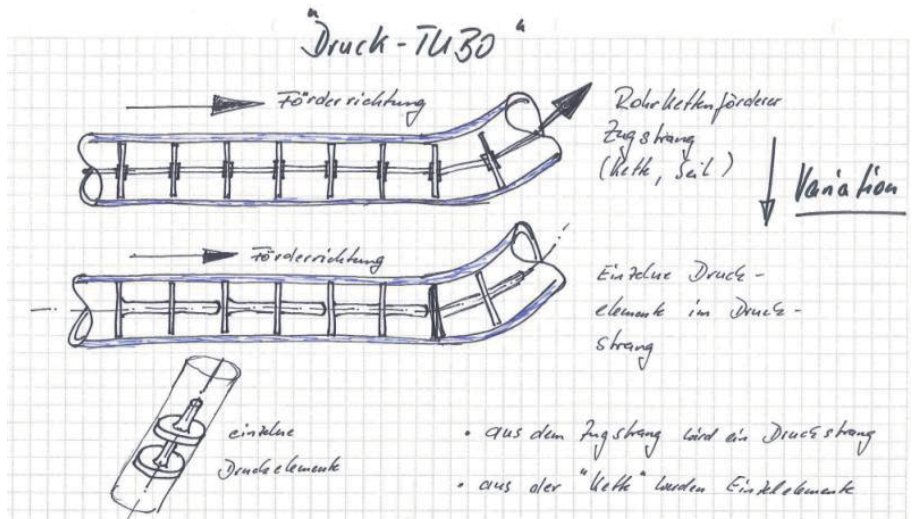 "Druck-TUBO"
Förderrichtung
Rohrkettenförderer
Zugstrang
(Kette, Seil)
Variation
Förderrichtung
Einzelne Druck-
elemente im Druck-
strang
einzelne
Druckelemente
• aus dem Zugstrang wird ein Druckstrang
• aus der "Kette" werden Einzelelemente